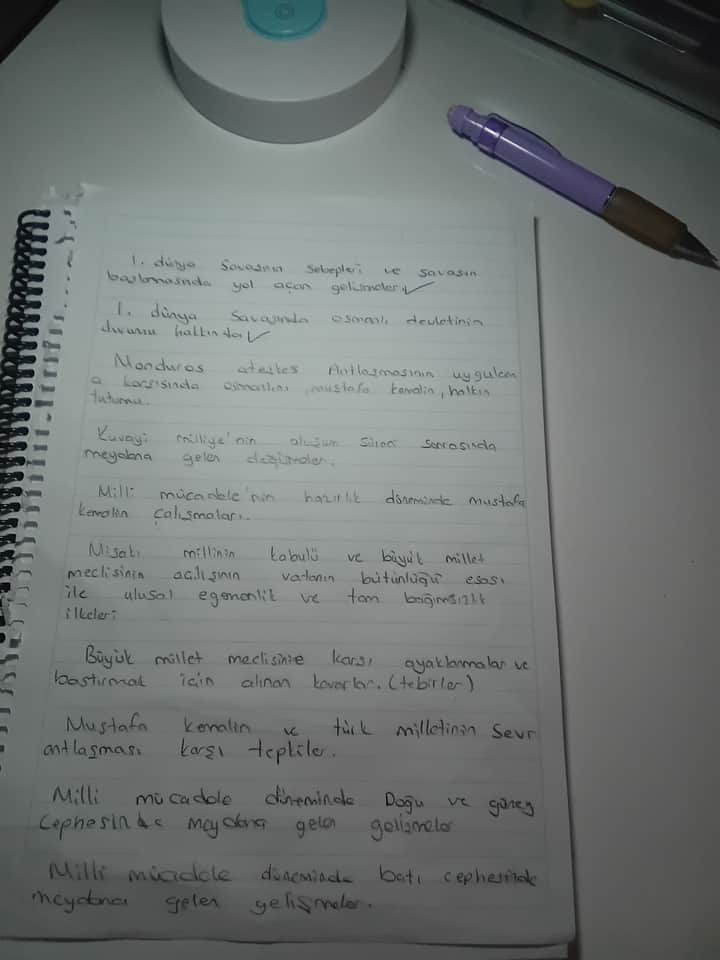 1. dünya Savaşının sebepleri ve savaşın
başlamasında yol açan gelişmeler ✓
1. dünya Savaşında osmanlı devletinin
durumu hakkında ✓
Monduros ateşkes Antlaşmasının uygulem
a karşısında osmanlını, mustafa kemalin, halkın
tutumu.
Kuvayi milliye'nin oluşum Süreci sonrasında
meydana gelen değişmeler.
Milli mücadele'nin hazırlık döneminde mustafa
kemalin çalışmaları.
Misakı millinin kabulü ve büyük millet
meclisinin açılışının vatanın bütünlüğü esası
ile ulusal egemenlik ve tam bağımsızlık
ilkeleri
Büyük millet meclisine karşı ayaklanmalar ve
bastırmak için alınan kararlar. (tebirler)
Mustafa kemalin ve türk milletinin Sevr
antlaşması karşı tepkiler.
Milli mücadele döneminde Doğu ve güney
Cephesinde meydana gelen gelişmeler
Milli mücadele döneminde batı cephesinde
meydana gelen gelişmeler.